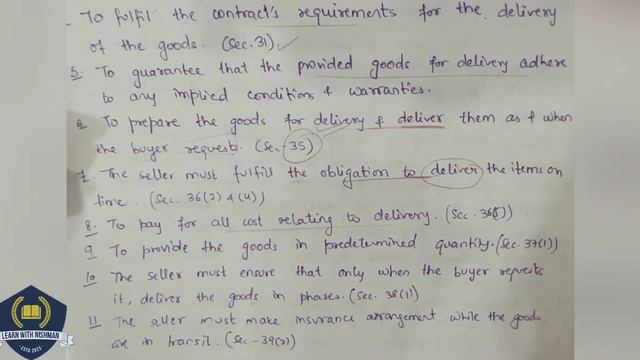 - To fulfil the contract's requirements for the delivery
of the goods. (Sec. 31)
5. To guarantee that the provided goods for delivery adhere
to any implied conditions & warranties.
6. To prepare the goods for delivery & deliver them as & when
the buyer request. (Sec-35)
7. The seller must fulfill the obligation to deliver the items on
time. (Sec. 36(2) & (4))
8. To pay for all cost relating to delivery. (Sec. 36(5))
9 To provide the goods in predetermined quantity. (Sec. 37(1))
10 The seller must ensure that only when the buyer requests
it, deliver the goods in phases. (Sec. 38(1))
11 The seller must make insurance arrangement while the goods
are in transit. (Sec-39(2))
LEARN WITH NISHMAN
ESTD 2023